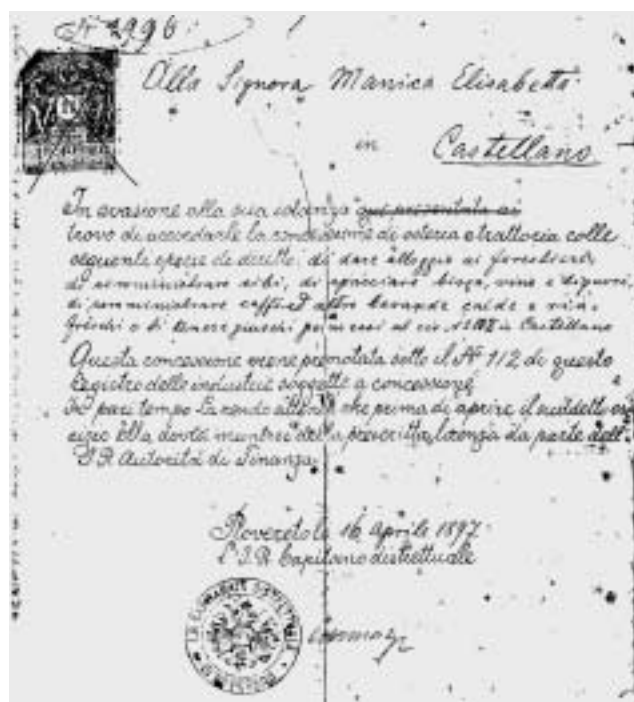 Nº 2996
Alla Signora Manica Elisabetta
in Castellano
In evasione alla sua istanza qui presentata ai
trovo di accordarle la concessione di osteria e trattoria colle
seguente specie di diritti: di dare alloggio ai forestieri,
di somministrare cibi, di spacciare birra, vino e liquori,
di somministrare caffè ed altre bevande calde e rin-
freschi e di tenere giuochi permessi al civ. Castellano
Questa concessione viene prenotata sotto il Nº 1/2 di questo
registro delle industrie soggette a concessione
In pari tempo La rendo attenta che prima di aprire il suddetto eser
cizio Ella dovrà munirsi della prescritta licenza da parte dell'
I. R. Autorità di Finanza.
Rovereto li 16 Aprile 1897.
L'I. R. Capitano distrettuale